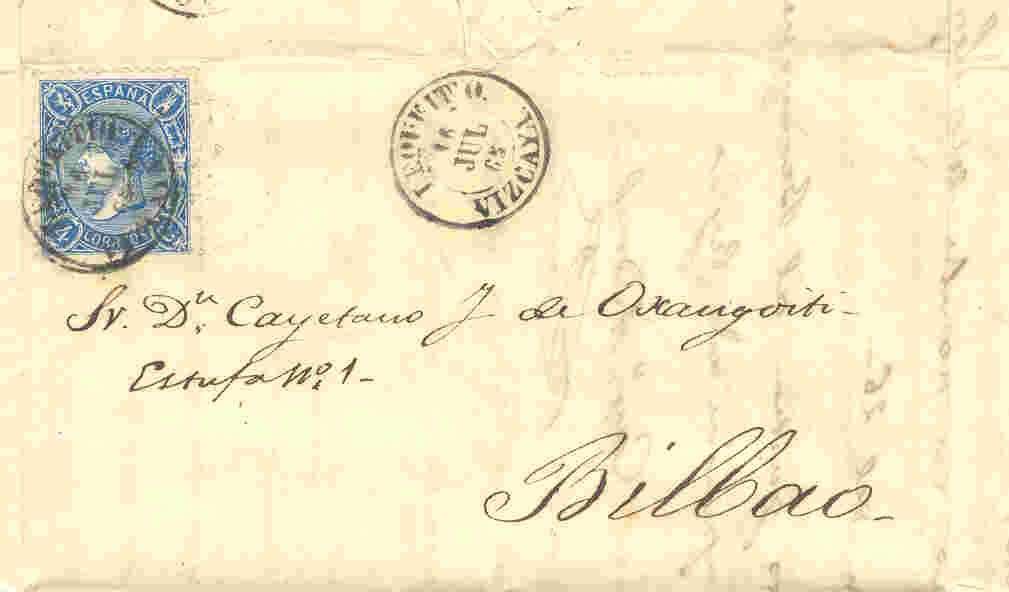 ESPAÑA
4
CORREOS
LEQUEITIO.
JUL
VIZCAYA
Sr. Dn. Cayetano J de Oxangoiti-
Estufa No. 1-
Bilbao-